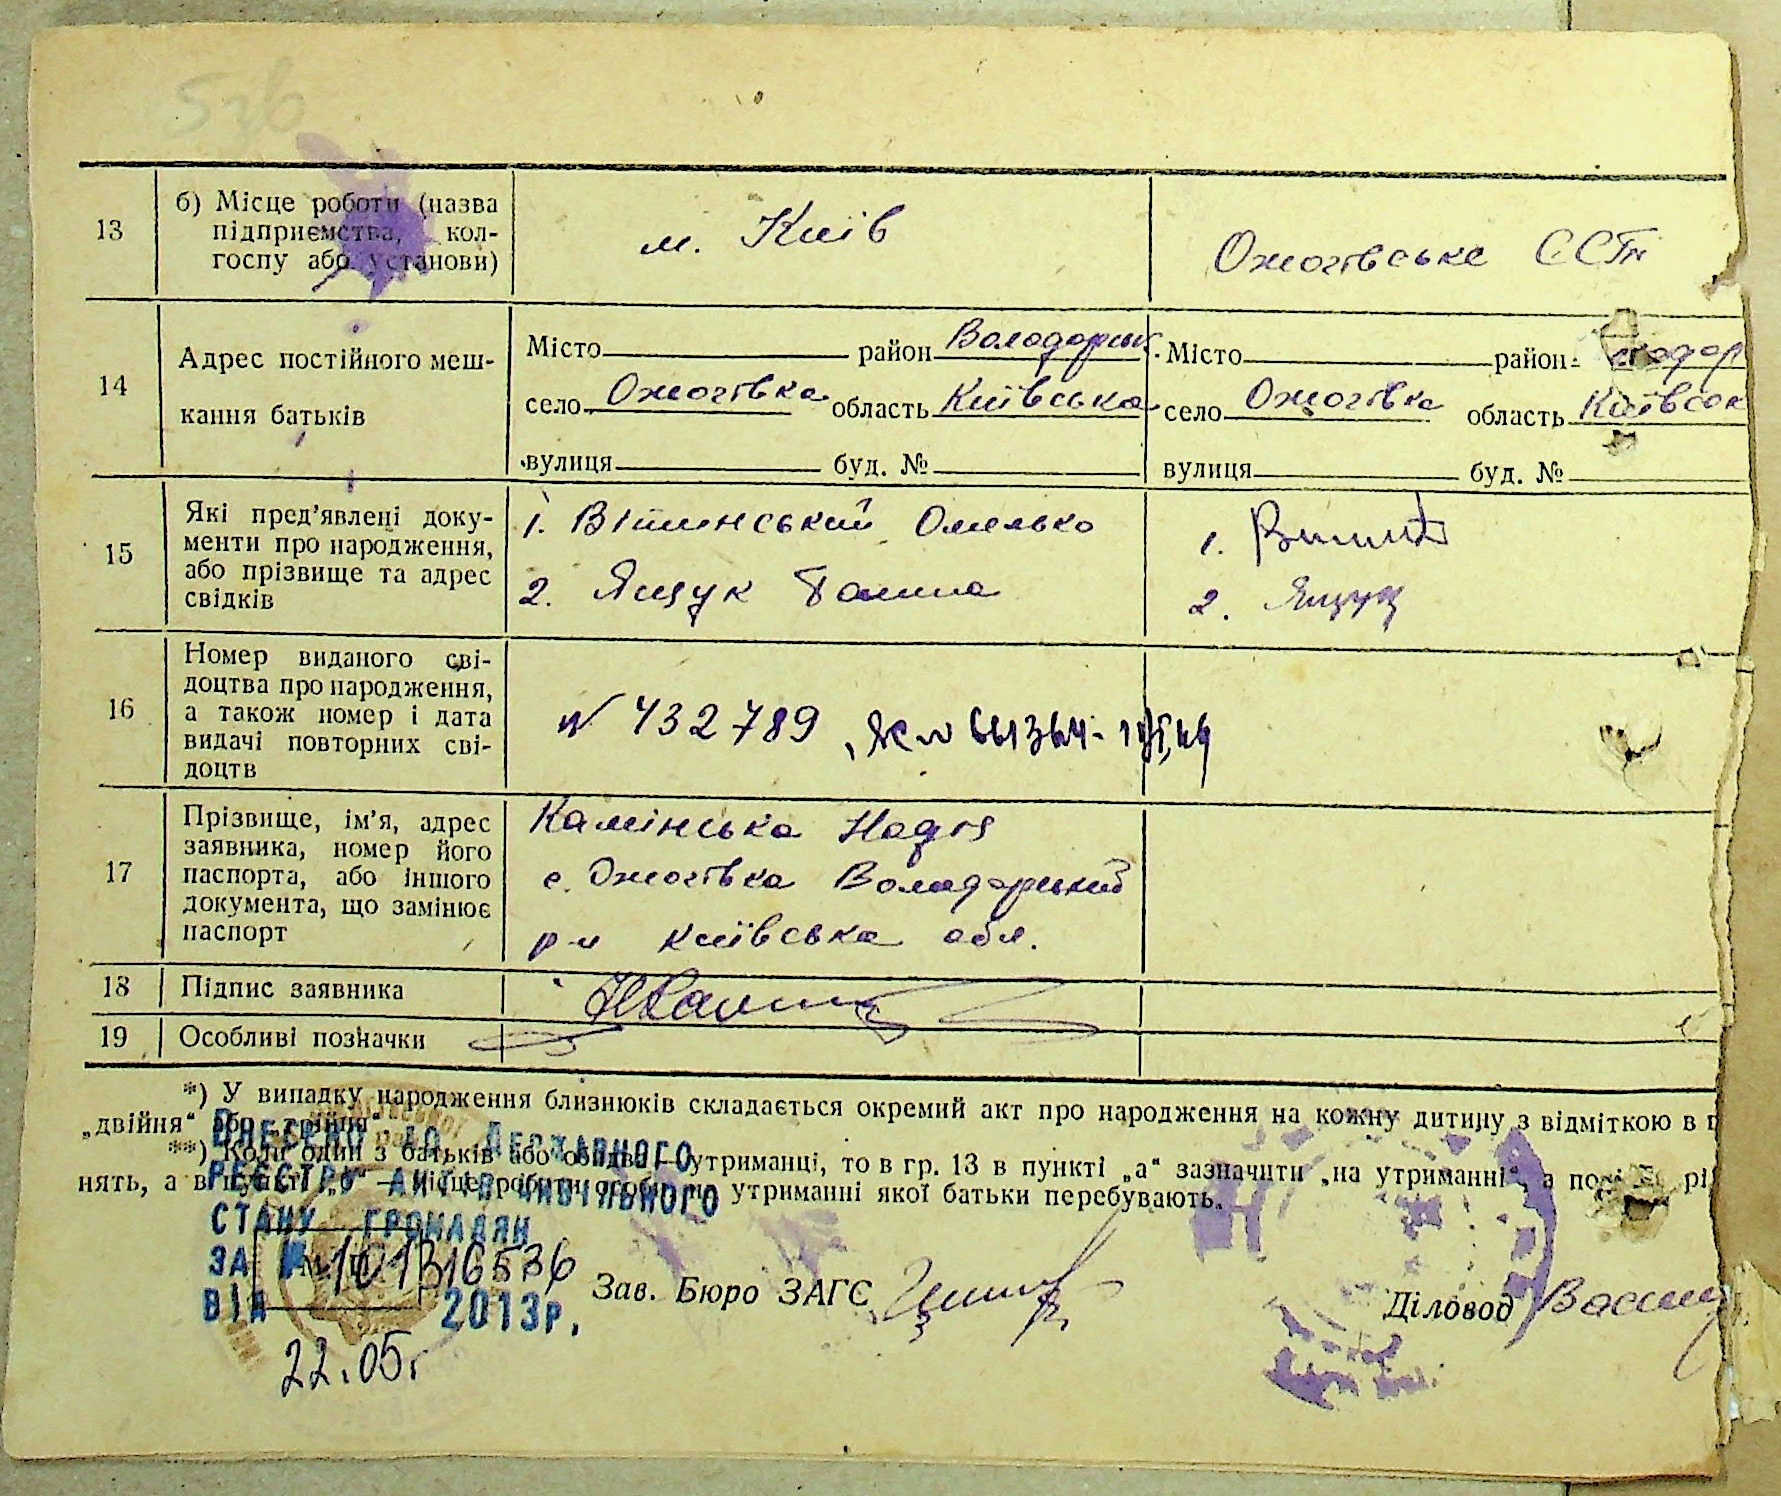 13
б) Місце роботи (назва
підприємства, кол-
госпу або установи)
м. Київ
Ожогівське ССТ
14
Адрес постійного меш-
кання батьків
Місто район Володарськ.
село Ожогівка область Київська
вулиця буд. №
Місто район
село Ожогівка область Київськ
вулиця буд. №
15
Які пред’явлені доку-
менти про народження,
або прізвище та адрес
свідків
1. Вітинський Омелько
2. Ящук Галина
1.
2. Ящук
16
Номер виданого сві-
доцтва про народження,
а також номер і дата
видачі повторних сві-
доцтв
N 432789
17
Прізвище, ім’я, адрес
заявника, номер його
паспорта, або іншого
документа, що замінює
паспорт
Камінська Надія
с. Ожогівка Володарський
р-н Київська обл.
18
Підпис заявника
19
Особливі позначки
*) У випадку народження близнюків складається окремий акт про народження на кожну дитину з відміткою в г
„двійня“ або „трійня“.
**) Коли один з батьків або обидва — утриманці, то в гр. 13 в пункті „а“ зазначити „на утриманні“, а
нять, а в пункті „б“ — місце роботи особи, на утриманні якої батьки перебувають.
ВНЕСЕНО ДО ДЕРЖАВНОГО
РЕЄСТРУ АКТІВ ЦИВІЛЬНОГО
СТАНУ ГРОМАДЯН
ЗА № 101316536
ВІД 2013р.
22.05
Зав. Бюро ЗАГС
Діловод